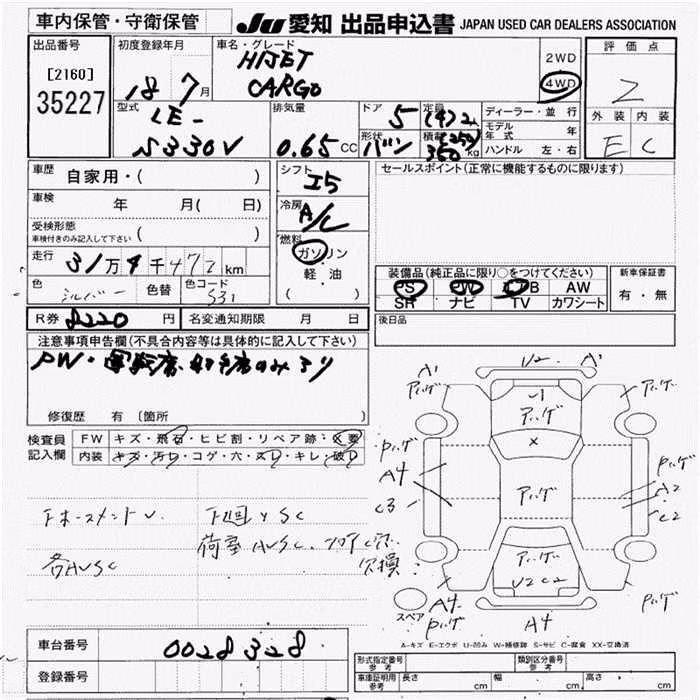 車内保管・守衛保管
JU 愛知 出品申込書 JAPAN USED CAR DEALERS ASSOCIATION
出品番号
[2160]
35227
初度登録年月
18 7月
車名・グレード
HIJET
CARGO
2WD
4WD
評価点
2
外装 内装
E C
型式
LE-
S330V
排気量
0.65 CC
ドア
5
定員
(4) 2人
形状
バン
積載
(250)
350 kg
ディーラー・並行
モデル年式 年
ハンドル 左・右
車歴
自家用・( )
車検
年 月( 日)
受検形態
車検付きのみ記入して下さい ( )
走行
31万4千472km
色
シルバー
色替
色コード
S31
シフト
I5
冷房
A/C
燃料
ガソリン
軽・油
( )
セールスポイント(正常に機能するものに限ります)
装備品(純正品に限り○をつけてください)
PS PW エアB AW
SR ナビ TV カワシート
新車保証書
有・無
R券 8220 円
名変通知期限 月 日
後日品
注意事項申告欄(不具合内容等は具体的に記入して下さい)
PW・運転席、助手席のみあり
修復歴 有 〔箇所
検査員
記入欄
FW キズ・飛石・ヒビ割・リペア跡・X要
内装 キズ・汚レ・コゲ・穴・スレ・キレ・破レ
下回りSC
荷室AVSC、フロアC穴
欠損
各AVSC
A1
アバゲ
U2
A1
アバゲ
U1
アバゲ
X
Pバゲ
A4
C3
アバゲ
Pバゲ
A2
C2
アバゲ
U2 C2
A4
Pバゲ
A4
Pバゲ
スペア
A-キズ E-エクボ U-凹み W-補修跡 S-サビ C-腐食 XX-交換済
車台番号
0028328
登録番号
形式指定番号
参考
類別区分番号
参考
車庫証明用
参考
長さ cm 幅 cm 高さ cm